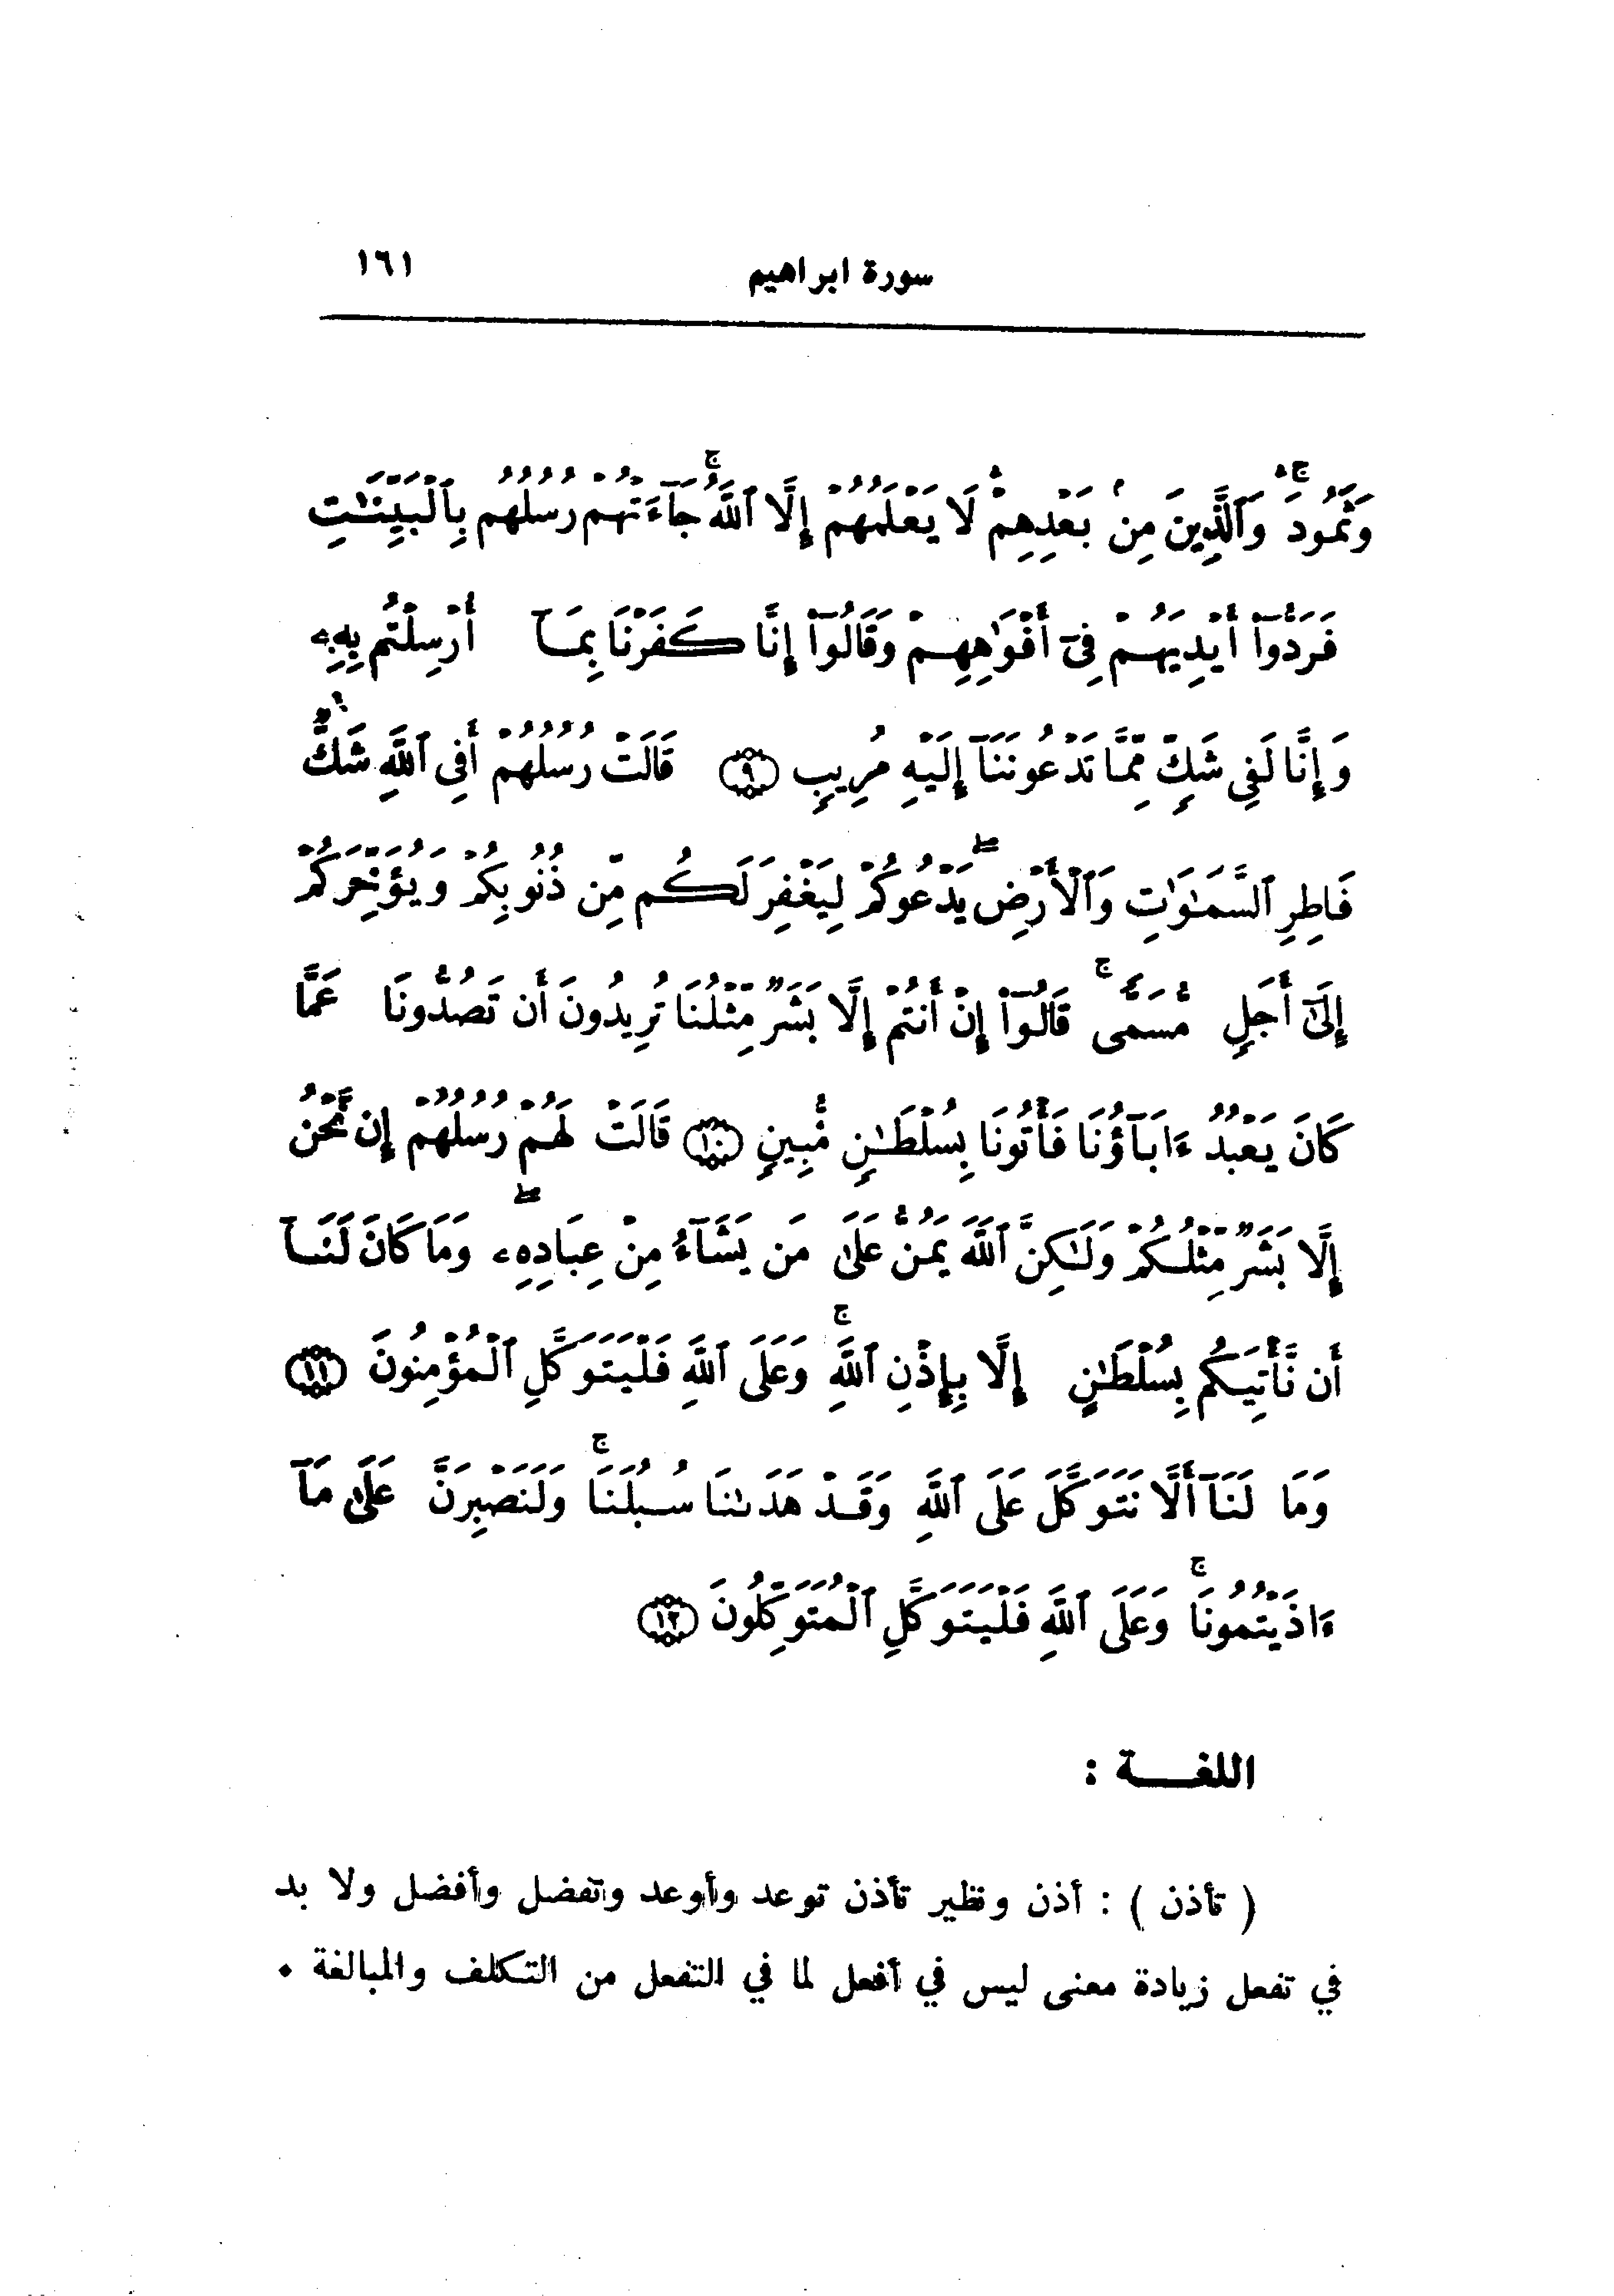 سورة ابراهيم ١٦١
وَثَمُودَ ۛ وَٱلَّذِينَ مِنۢ بَعْدِهِمْ ۛ لَا يَعْلَمُهُمْ إِلَّا ٱللَّهُ ۚ جَآءَتْهُمْ رُسُلُهُم بِٱلْبَيِّنَـٰتِ
فَرَدُّوٓا۟ أَيْدِيَهُمْ فِىٓ أَفْوَٰهِهِمْ وَقَالُوٓا۟ إِنَّا كَفَرْنَا بِمَآ أُرْسِلْتُم بِهِۦ
وَإِنَّا لَفِى شَكٍّ مِّمَّا تَدْعُونَنَآ إِلَيْهِ مُرِيبٍ ﴿٩﴾ قَالَتْ رُسُلُهُمْ أَفِى ٱللَّهِ شَكٌّ
فَاطِرِ ٱلسَّمَـٰوَٰتِ وَٱلْأَرْضِ ۖ يَدْعُوكُمْ لِيَغْفِرَ لَكُم مِّن ذُنُوبِكُمْ وَيُؤَخِّرَكُمْ
إِلَىٰٓ أَجَلٍ مُّسَمًّى ۚ قَالُوٓا۟ إِنْ أَنتُمْ إِلَّا بَشَرٌ مِّثْلُنَا تُرِيدُونَ أَن تَصُدُّونَا عَمَّا
كَانَ يَعْبُدُ ءَابَآؤُنَا فَأْتُونَا بِسُلْطَـٰنٍ مُّبِينٍ ﴿١٠﴾ قَالَتْ لَهُمْ رُسُلُهُمْ إِن نَّحْنُ
إِلَّا بَشَرٌ مِّثْلُكُمْ وَلَـٰكِنَّ ٱللَّهَ يَمُنُّ عَلَىٰ مَن يَشَآءُ مِنْ عِبَادِهِۦ ۖ وَمَا كَانَ لَنَآ
أَن نَّأْتِيَكُم بِسُلْطَـٰنٍ إِلَّا بِإِذْنِ ٱللَّهِ ۚ وَعَلَى ٱللَّهِ فَلْيَتَوَكَّلِ ٱلْمُؤْمِنُونَ ﴿١١﴾
وَمَا لَنَآ أَلَّا نَتَوَكَّلَ عَلَى ٱللَّهِ وَقَدْ هَدَىٰنَا سُبُلَنَا ۚ وَلَنَصْبِرَنَّ عَلَىٰ مَآ
ءَاذَيْتُمُونَا ۚ وَعَلَى ٱللَّهِ فَلْيَتَوَكَّلِ ٱلْمُتَوَكِّلُونَ ﴿١٢﴾
اللغـــة :
( تأذن ) : أذن ونظير تأذن توعد وأوعد وتفضل وأفضل ولا بد
في تفعل زيادة معنى ليس في أفعل لما في التفعل من التكلف والمبالغة .